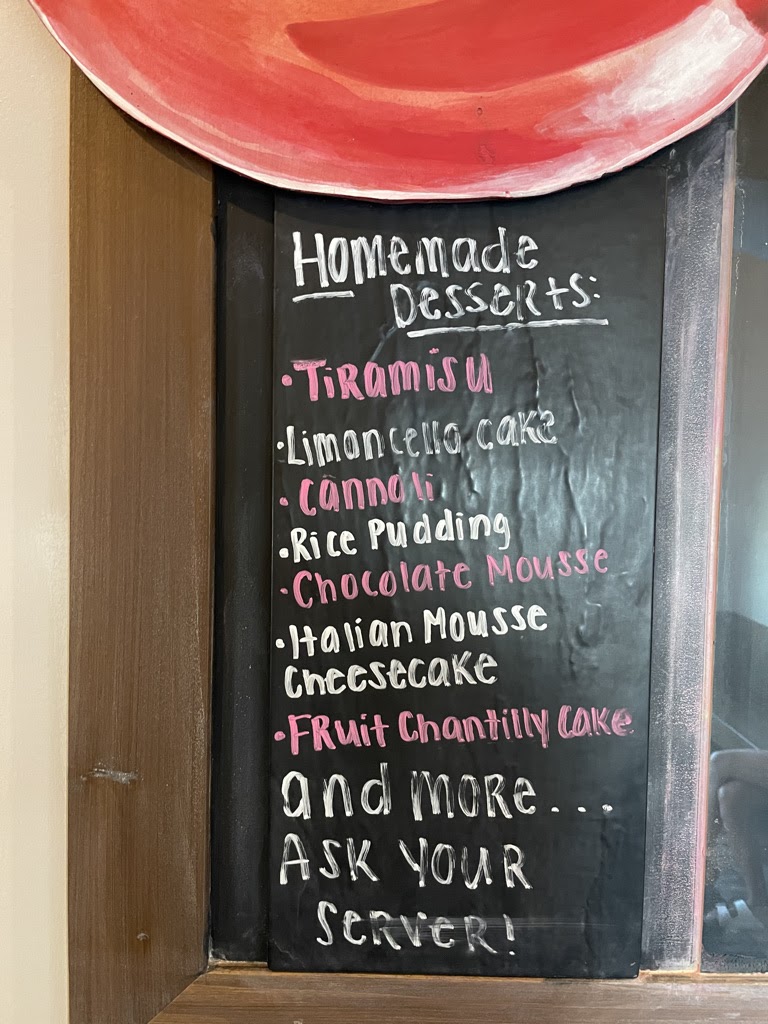 Homemade
Desserts:
• Tiramisu
• Limoncello cake
• Cannoli
• Rice Pudding
• Chocolate Mousse
• Italian Mousse
Cheesecake
• Fruit Chantilly Cake
and more...
Ask your
server!